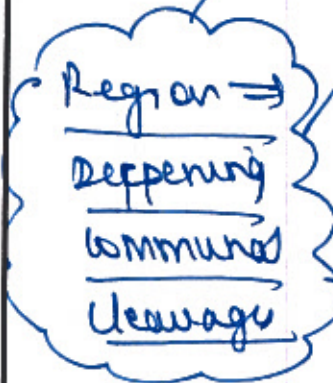 Region ⇒
Deepening
communal
cleavage